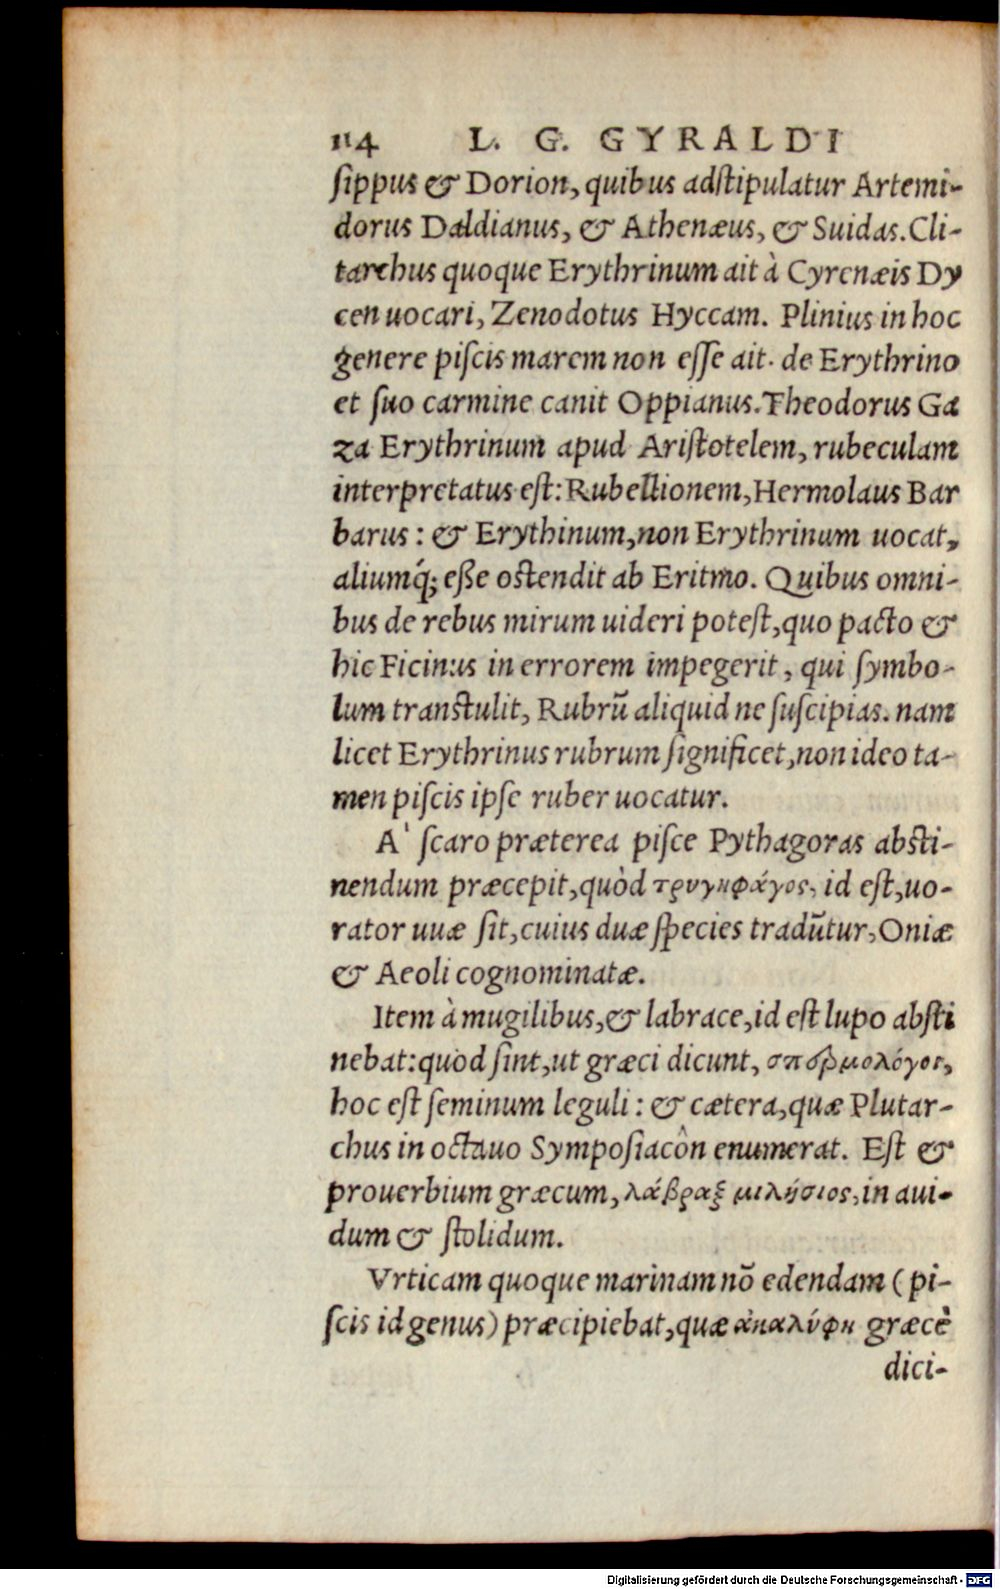 114 L. G. GYRALDI
ſippus & Dorion, quibus adſtipulatur Artemi-
dorus Daldianus, & Athenæus, & Suidas. Cli-
tarchus quoque Erythrinum ait à Cyrenæis Dy
cen uocari, Zenodotus Hyccam. Plinius in hoc
genere piſcis marem non eſſe ait. de Erythrino
et ſuo carmine canit Oppianus. Theodorus Ga
za Erythrinum apud Ariſtotelem, rubeculam
interpretatus eſt: Rubellionem, Hermolaus Bar
barus: & Erythinum, non Erythrinum uocat,
aliumq́; eße oſtendit ab Eritmo. Quibus omni-
bus de rebus mirum uideri poteſt, quo pacto &
hic Ficinus in errorem impegerit, qui ſymbo-
lum tranſtulit, Rubrũ aliquid ne ſuſcipias. nam
licet Erythrinus rubrum ſignificet, non ideo ta-
men piſcis ipſe ruber uocatur.
A' ſcaro præterea piſce Pythagoras abſti-
nendum præcepit, quòd τρυγηφάγος, id eſt, uo-
rator uuæ ſit, cuius duæ ſpecies tradũtur, Oniæ
& Aeoli cognominatæ.
Item à mugilibus, & labrace, id eſt lupo abſti
nebat: quòd ſint, ut græci dicunt, σπερμολόγοι,
hoc eſt ſeminum leguli: & cætera, quæ Plutar-
chus in octauo Sympoſiacôn enumerat. Eſt &
prouerbium græcum, λάβραξ μιλήσιος, in aui-
dum & ſtolidum.
Vrticam quoque marinam nõ edendam (pi-
ſcis id genus) præcipiebat, quæ ἀκαλύφη græcè
dici-
Digitalisierung gefördert durch die Deutsche Forschungsgemeinschaft - DFG